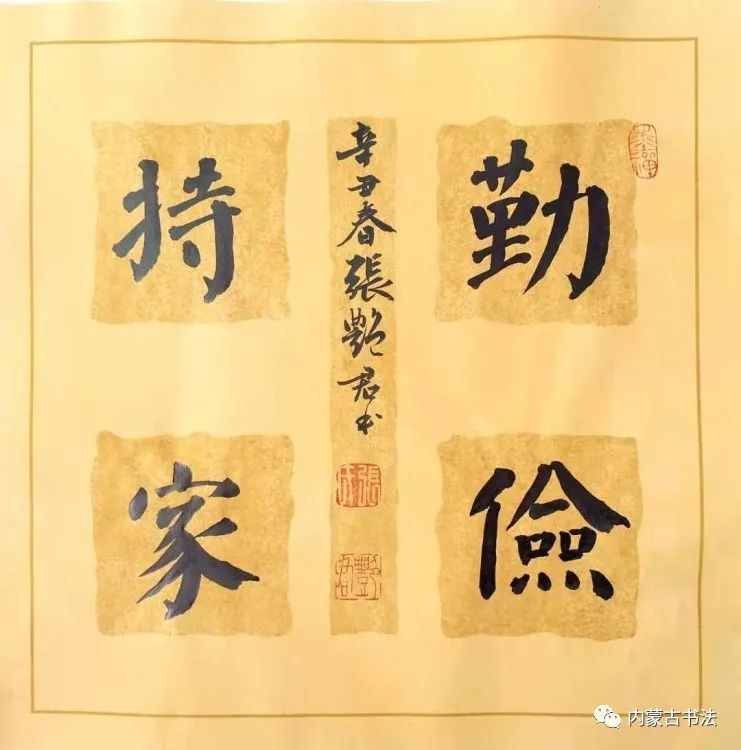 勤儉
持家
辛丑春張艷君书
内蒙古书法